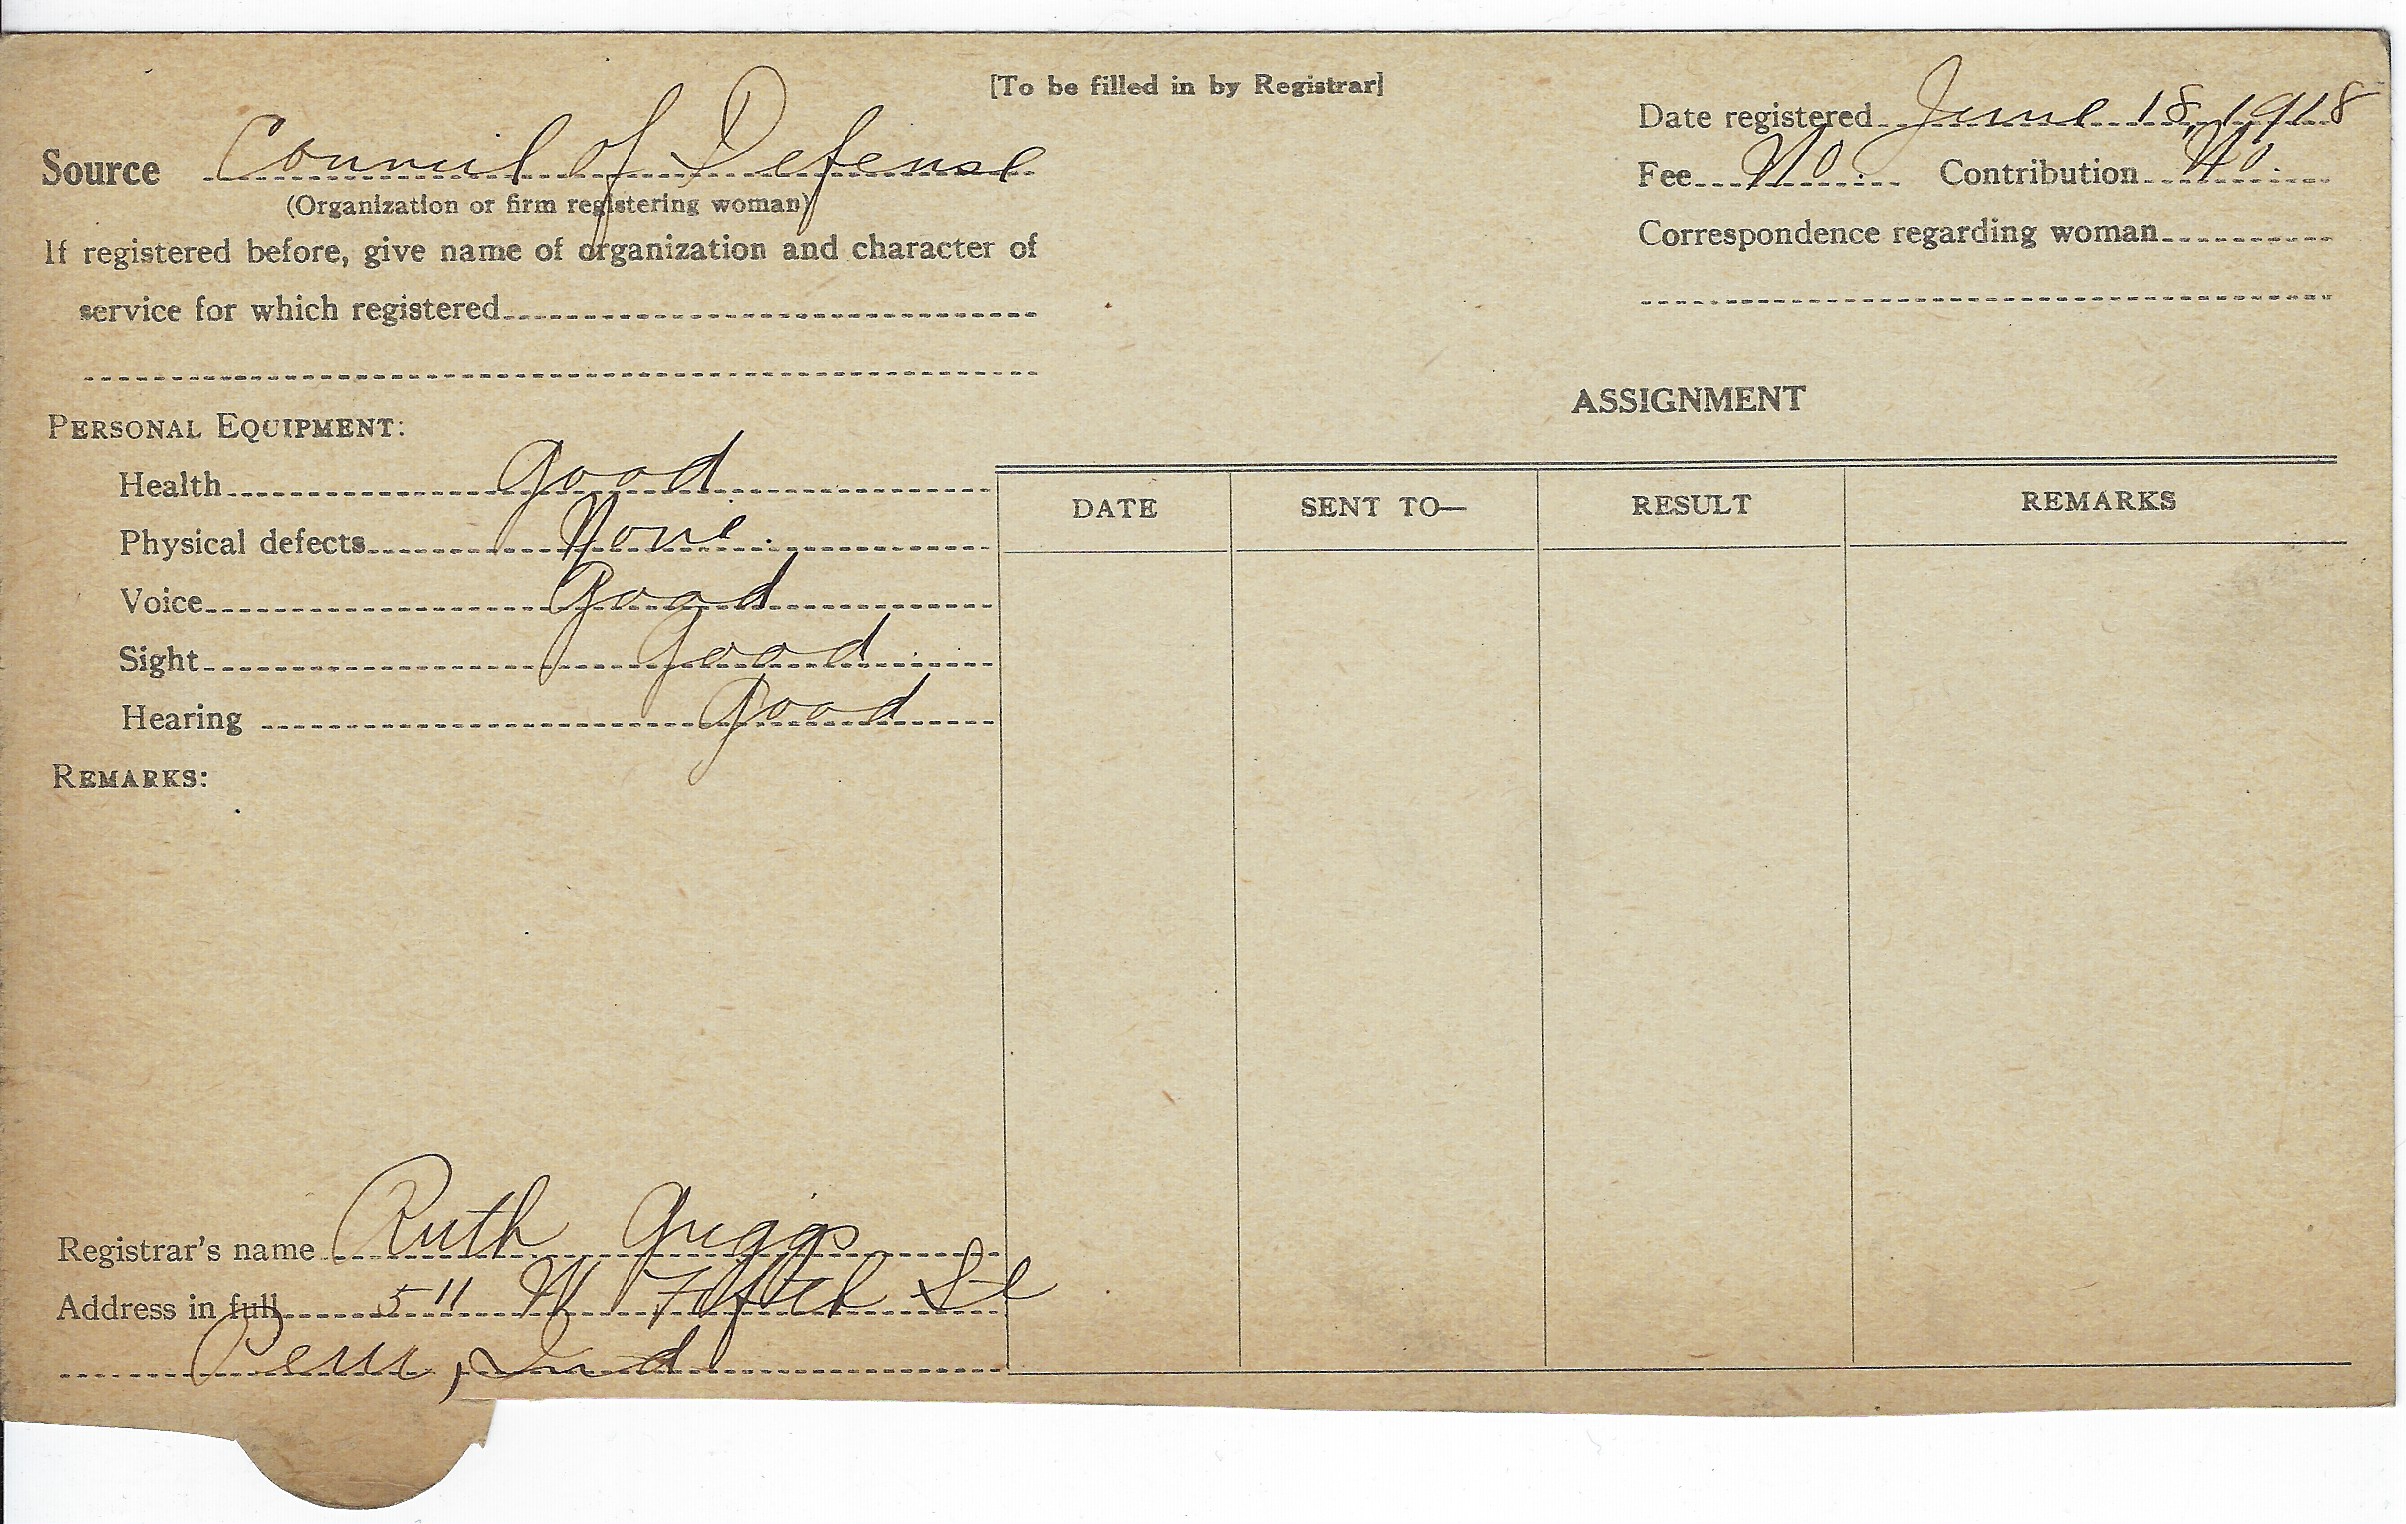 [To be filled in by Registrar]
Source Council of Defense
(Organization or firm registering woman)
If registered before, give name of organization and character of
service for which registered
Date registered June 18, 1918
Fee No. Contribution No.
Correspondence regarding woman
PERSONAL EQUIPMENT:
Health Good
Physical defects None.
Voice Good
Sight Good
Hearing Good
REMARKS:
ASSIGNMENT
DATE SENT TO— RESULT REMARKS
Registrar's name Ruth Griggs
Address in full 511 W Fifth St
Peru, Ind